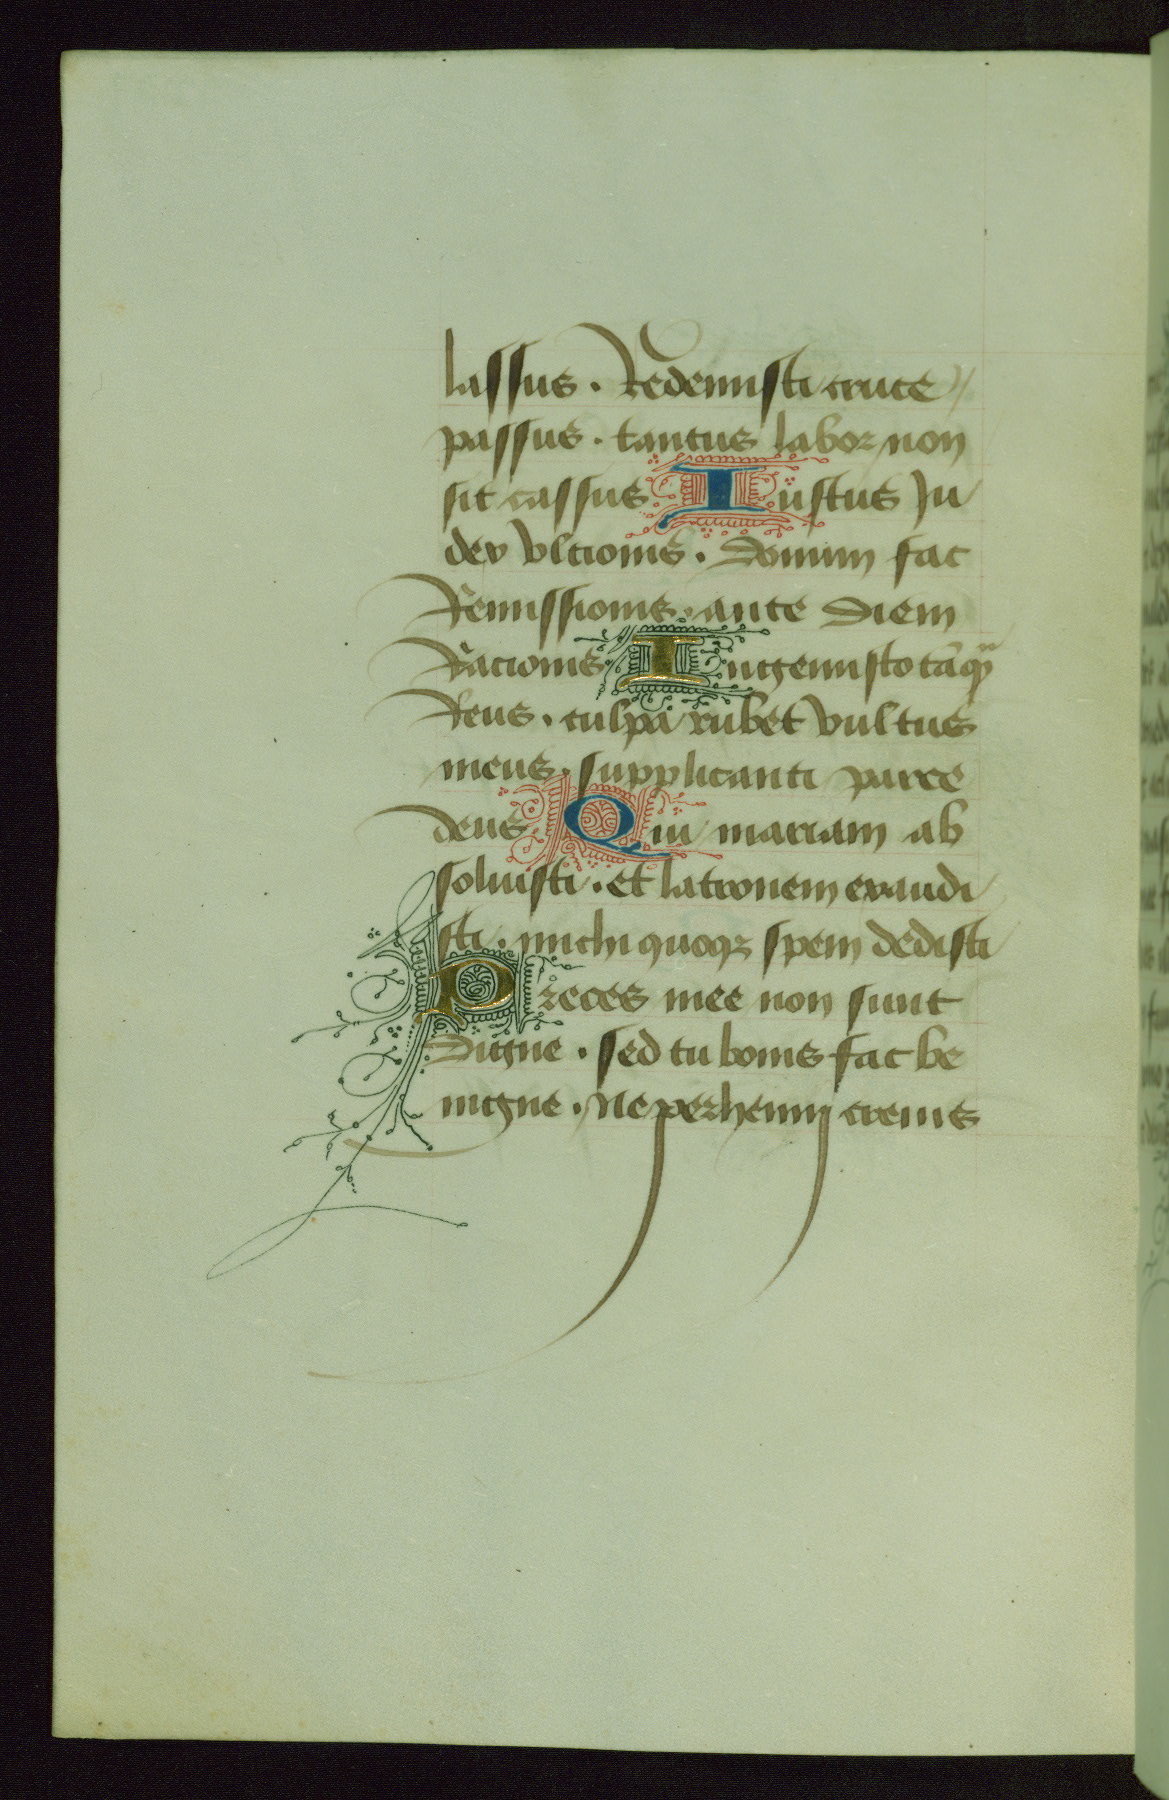 lassus . Redemisti cruce
passus . tantus labor non
sit cassus Iustus Ju
dex vltionis . Donum fac
Remissionis . ante Diem
Racionis Ingemisto tāqͫ
Reus . culpa rubet vultus
meus . supplicanti parce
deus Qui mariam ab
soluisti . et latronem exaudi
sti . michi quoqꝫ spem dedisti
Preces mee non sunt
Digne . sed tu bonus fac be
nigne . Ne perhenni cremis